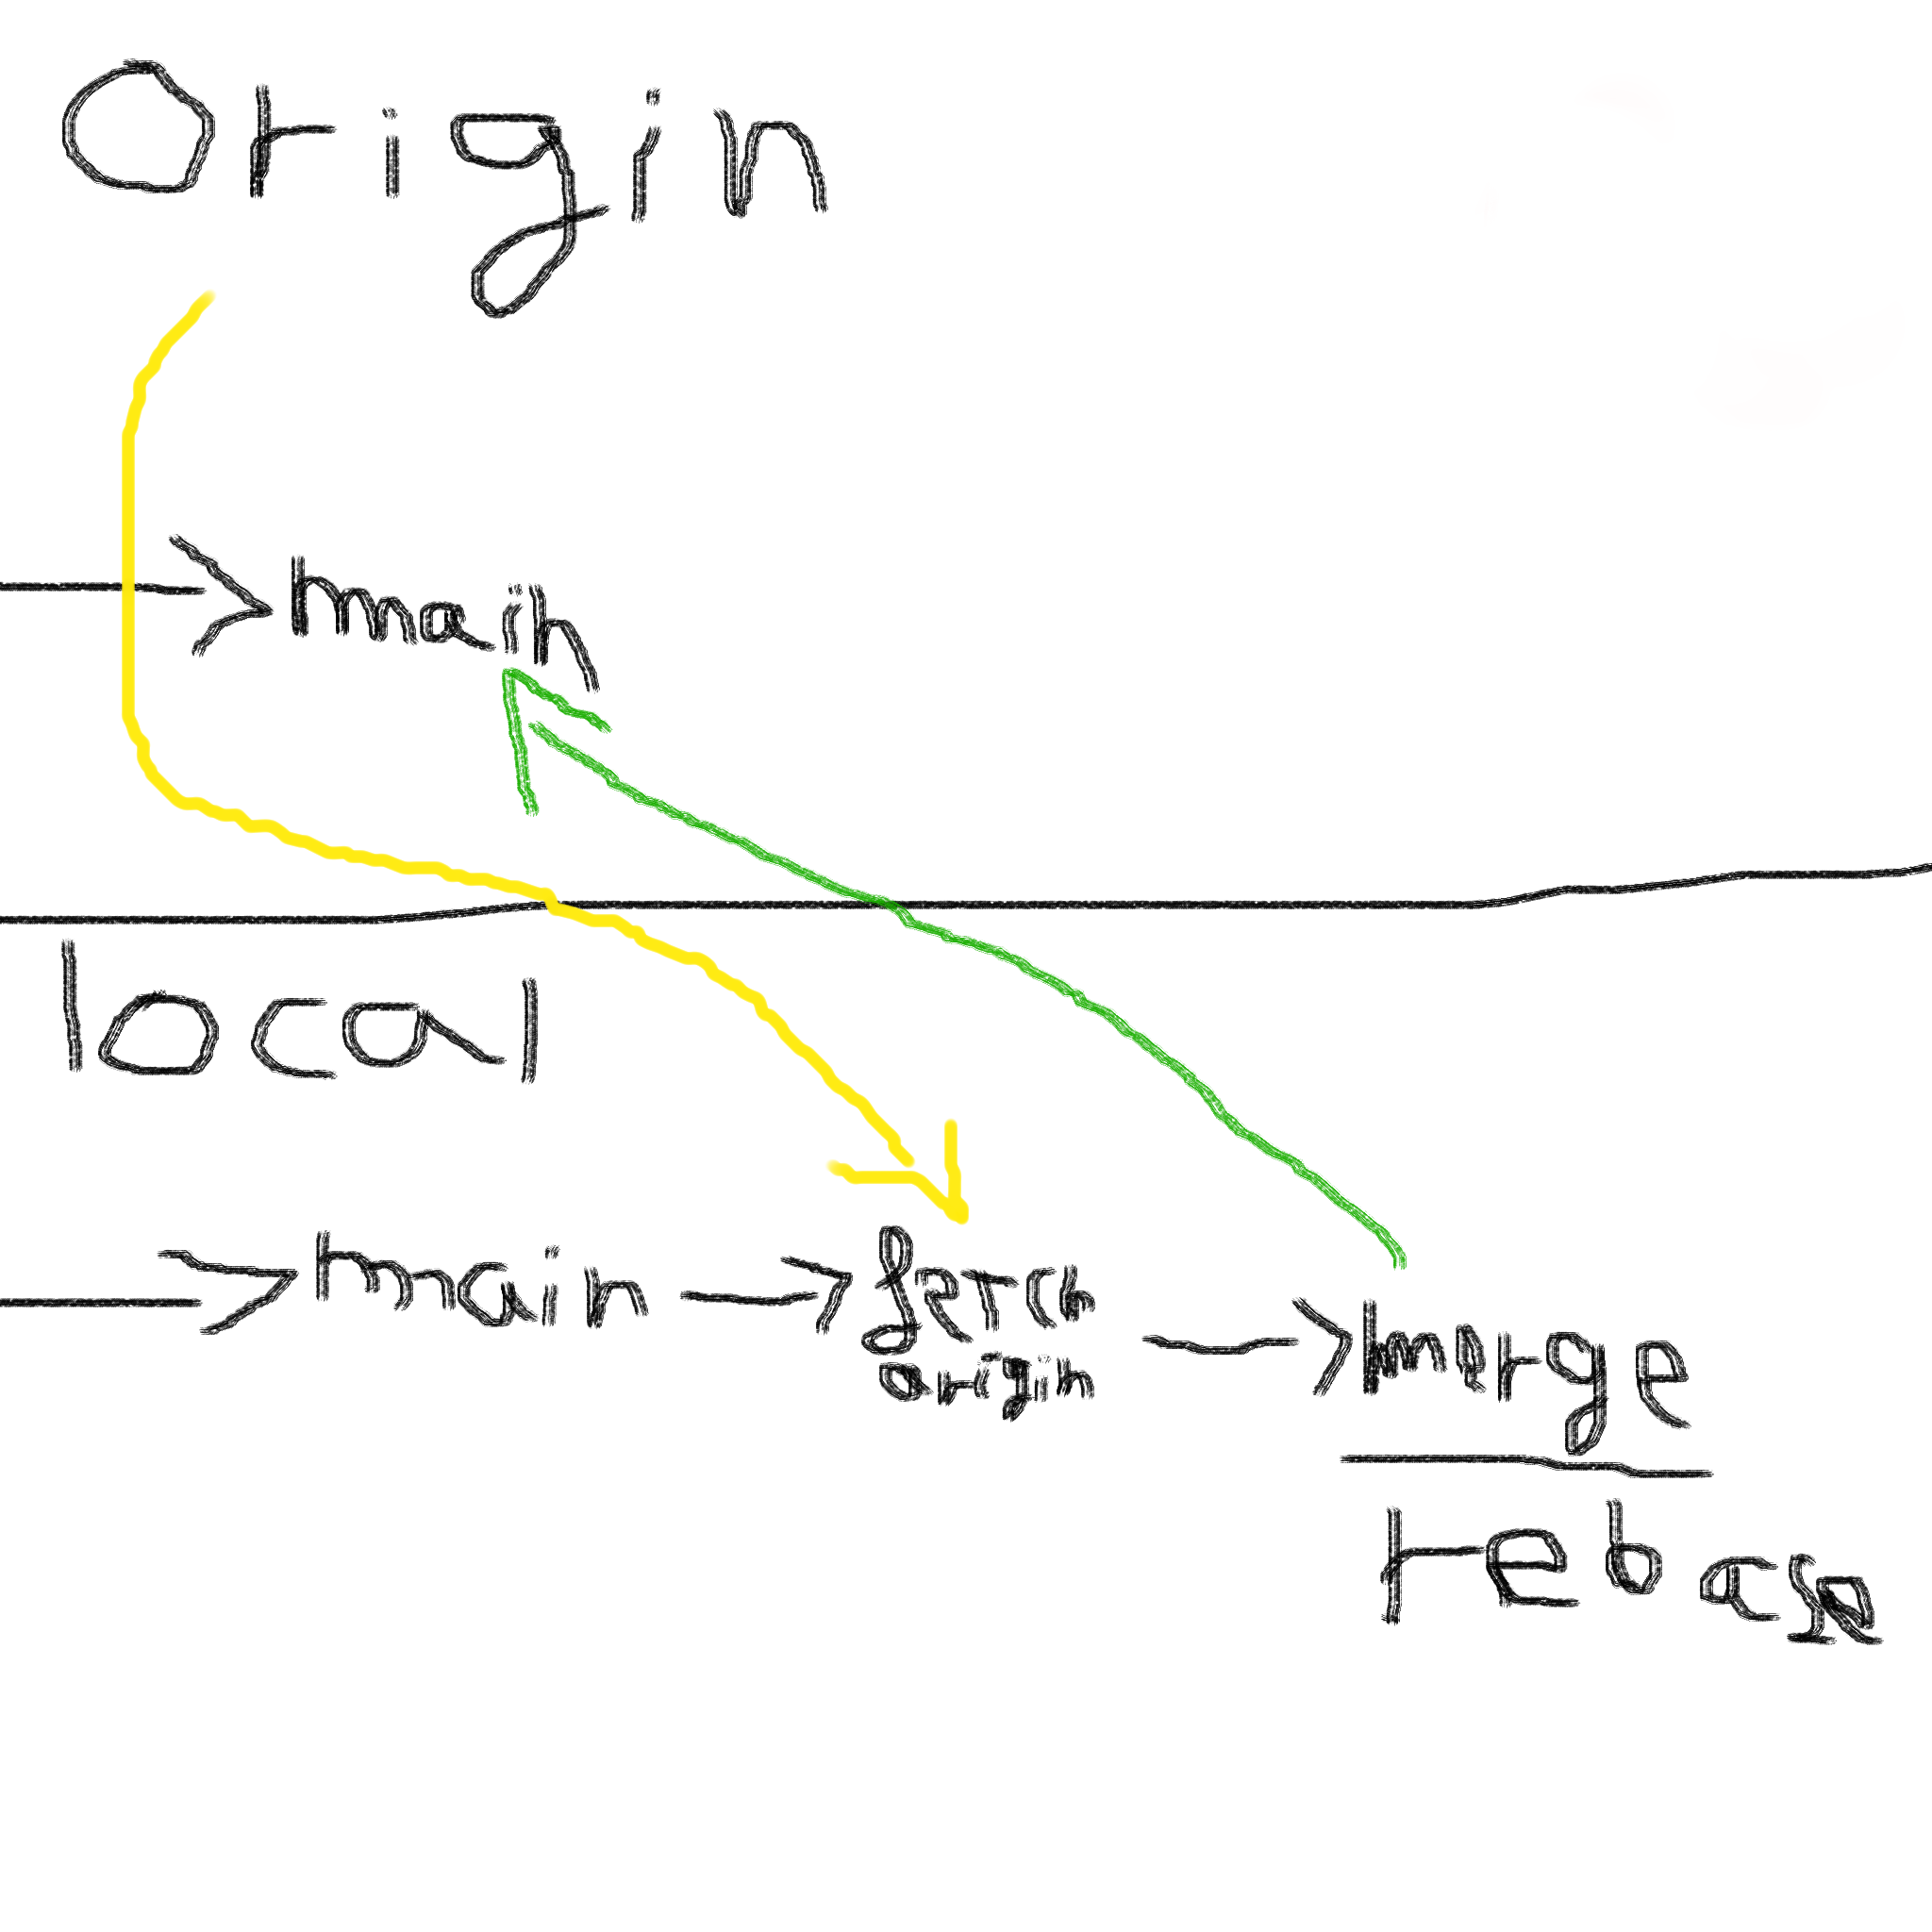 Origin
main
local
main
fetch
origin
merge
rebase